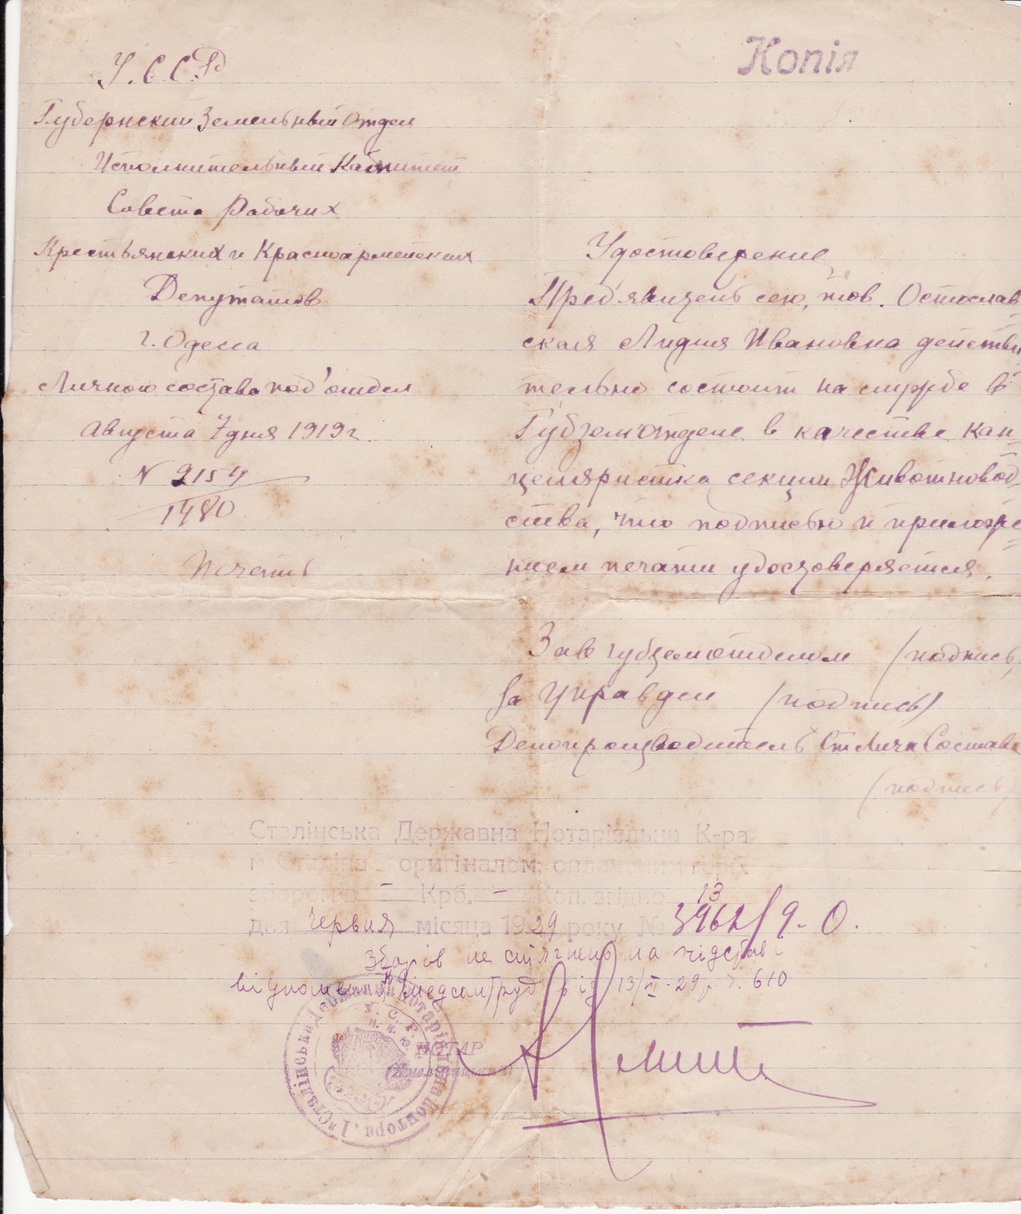 Копія
У.С.С.Р
Губернский Земельный Отдел
Исполнительный Комитет
Совета Рабочих
Крестьянских и Красноармейских
Депутатов
г. Одесса
Личного состава под'отдел
Августа 7 дня 1919 г.
N 9154
1480
Печать
Удостоверение
Пред'явитель сего, тов. Остослав-
ская Лидия Ивановна действи-
тельно состоит на службе в
Губземотделе в качестве кан-
целяристка секции Животновод-
ства, что подписью и приложе-
нием печати удостоверяется.
Зав губземотделом (подпись)
За Управдел (подпись)
Делопроизводитель Ст Личн Состава
(подпись)
Сталінська Державна Нотаріяльна К-ра
оригіналом
Крб. – Коп. згідно 13
дня червня місяця 1929 року № 3962/9-О.
Зборів не стягнень на підставі
відношення із 13/VI-29 р. Ч. 610
НОТАР